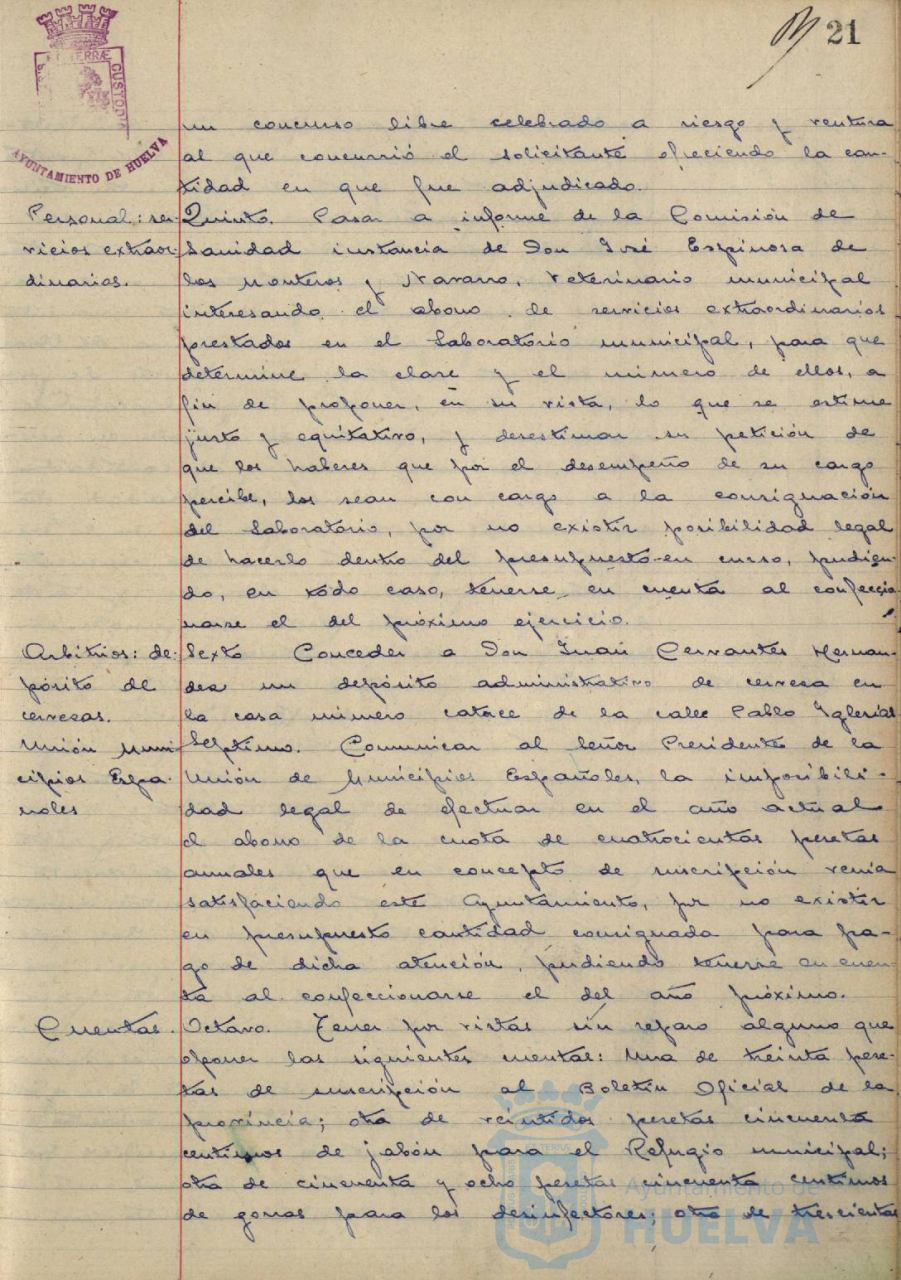 21
TERRÆ
CUSTODIA
AYUNTAMIENTO DE HUELVA
un concurso libre celebrado a riesgo y ventura
al que concurrió el solicitante ofreciendo la can-
tidad en que fue adjudicado.
Personal: ser-
vicios extraor-
dinarios.
Quinto. Pasar a informe de la Comisión de
Sanidad instancia de Don José Espinosa de
los Monteros y Navarro, Veterinario municipal
interesando el abono de servicios extraordinarios
prestados en el Laboratorio municipal, para que
determine la clase y el número de ellos, a
fin de proponer, en su vista, lo que se estime
justo y equitativo, y desestimar su petición de
que los haberes que por el desempeño de su cargo
percibe, los sean con cargo a la consignación
del Laboratorio, por no existir posibilidad legal
de hacerlo dentro del presupuesto en curso, pudien-
do, en todo caso, tenerse en cuenta al confeccio
narse el del próximo ejercicio.
Arbitrios: de-
pósito de
cervezas.
Sexto Conceder a Don Juan Cervantes Hernan-
dez un depósito administrativo de cerveza en
la casa número catorce de la calle Pablo Iglesias
Unión Muni
cipios Espa-
ñoles
Septimo. Comunicar al Señor Presidente de la
Unión de Municipios Españoles, la imposibili-
dad legal de efectuar en el año actual
el abono de la cuota de cuatrocientas pesetas
anuales que en concepto de suscripción venia
satisfaciendo este Ayuntamiento, por no existir
en presupuesto cantidad consignada para pa-
go de dicha atención, pudiendo tenerse en cuen-
ta al confeccionarse el del año próximo.
Cuentas.
Octavo. Tener por vistas sin reparo alguno que
oponer las siguientes cuentas: Una de treinta pese-
tas de suscripción al Boletin Oficial de la
provincia; otra de veintidos pesetas cincuenta
centimos de jabón para el Refugio municipal;
otra de cincuenta y ocho pesetas cincuenta centimos
de gorras para los desinfectores; otra de trescientas
Ayuntamiento de
HUELVA